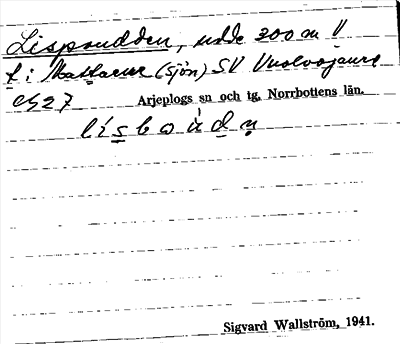 Lispoudden, udde 300 m V
t i Mattaure (sjön) SV Vuolvojaure
Arjeplogs sn och tg, Norrbottens län.
Sigvard Wallström, 1941.